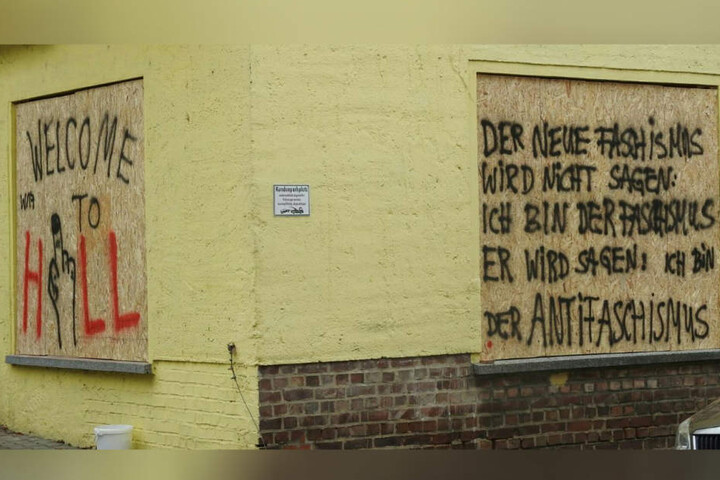 WELCOME
TO
H LL
Kundenparkplatz
DER NEUE FASCHISMUS
WIRD NICHT SAGEN:
ICH BIN DER FASCHISMUS
ER WIRD SAGEN: ICH BIN
DER ANTIFASCHISMUS